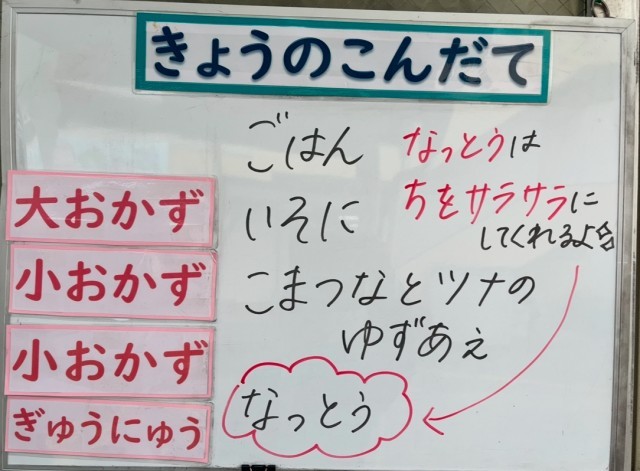 きょうのこんだて
ごはん
大おかず
いそに
小おかず
こまつなとツナの
ゆずあえ
小おかず
なっとう
ぎゅうにゅう
なっとうは
ちをサラサラに
してくれるよ☆